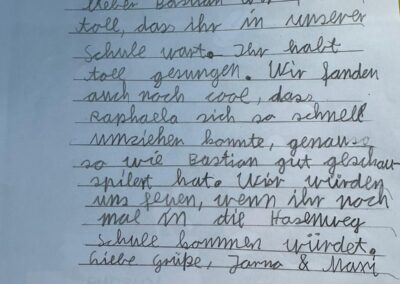 lieber Bastian
toll, dass ihr in unserer
Schule wart. Ihr habt
toll gesungen. Wir fanden
auch noch cool, dass
Raphaela sich so schnell
umziehen konnte, genauso
so wie Bastian gut geschau-
spilert hat. Wir würden
uns feuen, wenn ihr noch
mal in die Hasenweg
schule kommen würdet.
Liebe Grüße, Janna & Maxi